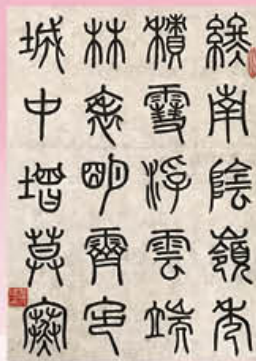 終南陰嶺秀
積雪浮雲端
林表明霽色
城中增莫寒